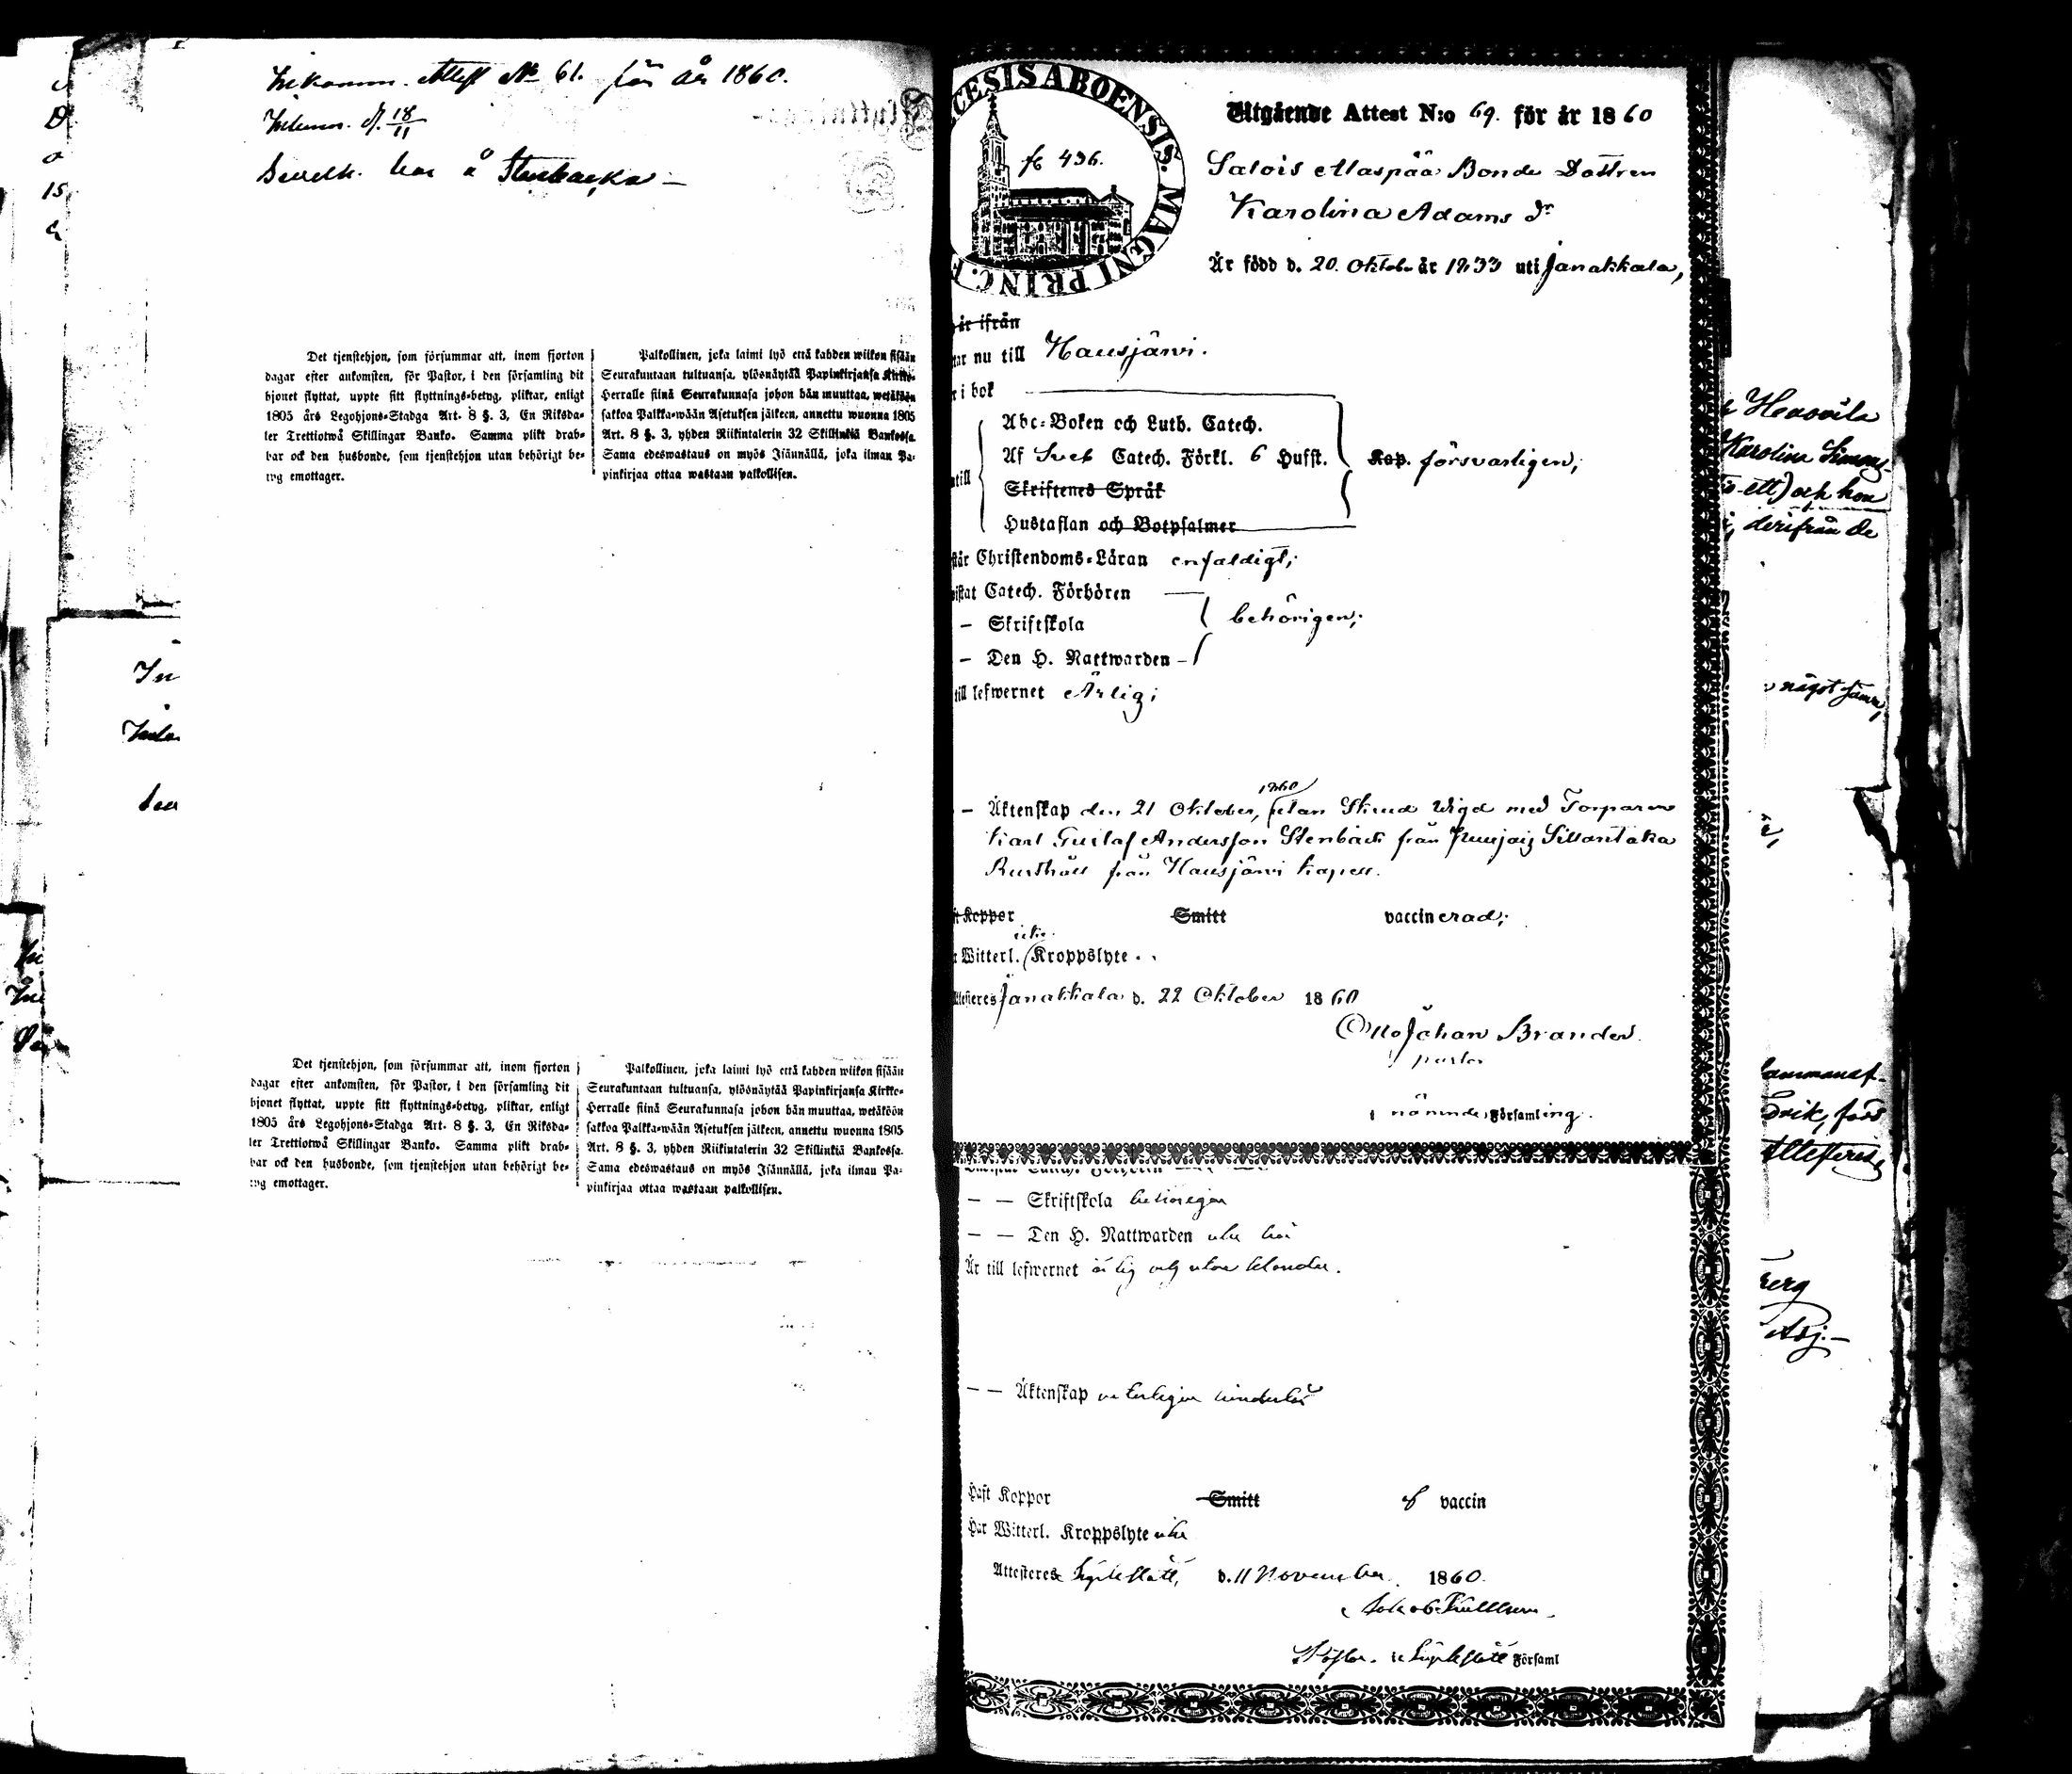 Inkomm. Attest No 61. för år 1860.
Inlemn. d. 18/11
bor å Stenbacka —
Det tjenstehjon, som försummar att, inom fjorton
dagar efter ankomsten, för Pastor, i den församling dit
hjonet flyttat, uppte sitt flyttnings-betyg, pliktar, enligt
1805 års Legohjons-Stadga Art. 8 §. 3, En Riksda-
ler Trettiotwå Skillingar Banko. Samma plikt drab-
bar ock den husbonde, som tjenstehjon utan behörigt be-
tyg emottager.
Palkollinen, joka laimi lyö että kahden wiikon sisään
Seurakuntaan tultuansa, ylösnäytää Papinkirjansa Kirkko-
Herralle siinä Seurakunnasa johon hän muuttaa, wetäköön
sakkoa Palkka-wään Asetuksen jälkeen, annettu wuonna 1805
Art. 8 §. 3, yhden Riikintalerin 32 Skillinkiä Bankossa.
Sama edeswastaus on myös Isännällä, joka ilman Pa-
pinkirjaa ottaa wastaan palkollisen.
Det tjenstehjon, som försummar att, inom fjorton
dagar efter ankomsten, för Pastor, i den församling dit
hjonet flyttat, uppte sitt flyttnings-betyg, pliktar, enligt
1805 års Legohjons-Stadga Art. 8 §. 3, En Riksda-
ler Trettiotwå Skillingar Banko. Samma plikt drab-
bar ock den husbonde, som tjenstehjon utan behörigt be-
tyg emottager.
Palkollinen, joka laimi lyö että kahden wiikon sisään
Seurakuntaan tultuansa, ylösnäytää Papinkirjansa Kirkko-
Herralle siinä Seurakunnasa johon hän muuttaa, wetäköön
sakkoa Palkka-wään Asetuksen jälkeen, annettu wuonna 1805
Art. 8 §. 3, yhden Riikintalerin 32 Skillinkiä Bankossa.
Sama edeswastaus on myös Isännällä, joka ilman Pa-
pinkirjaa ottaa wastaan palkollisen.
CESIS ABOENSIS. MAGNI PRINC. F
436.
Utgående Attest N:o 69. för år 1860
Salois Alaspää Bonde Dottren
Karolina Adams dr
Är född d. 20. Oktob. år 1833 uti Janakkala,
är ifrån
nu till Hausjärvi.
i bok
Abc-Boken och Luth. Catech.
Af Sveb Catech. Förkl. 6 Hufst. Kap. försvarligen;
till
Skriftenes Språk
Hustaflan och Botpsalmer
står Christendoms-Läran enfaldigt;
istat Catech. Förhören
— Skriftskola behörigen;
— Den H. Nattwarden
till lefwernet Ärlig;
— Äktenskap den 21 Oktober, 1860 utan Skrud wigd med Torparen
Karl Gustaf Andersson Stenback från Sillantaka
Rusthåll från Hausjärvi Kapell.
t Koppor Smitt vaccinerad;
Witterl. icke Kroppslyte
Attesteres Janakkala d. 22 Oktober 1860
Otto Johan Brander.
pastor
i nämnde Församling.
— — Skriftskola behörigen
— — Den H. Nattwarden
Är till lefwernet ärlig och utan klander.
— — Äktenskap hinderlös
Haft Koppor Smitt vaccin
Har Witterl. Kroppslyte icke
Attesteres d. 11 November 1860.
Församl
Karolina Simons-
ett) och hon
derifrån de
något